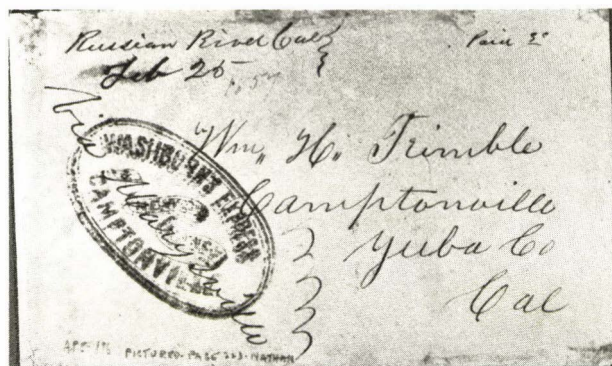 Russian River Cal
Paid
Feb 25
Via Marysville
WASHBURN'S EXPRESS
CAMPTONVILLE
Wm, H. Trimble
Camptonville
Yuba Co
Cal
PICTURED-PAGE 223-NATHAN